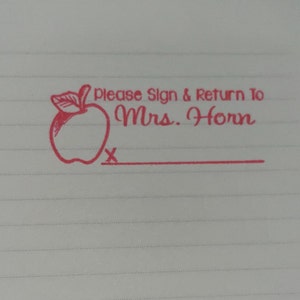 Please Sign & Return To
Mrs. Horn
X